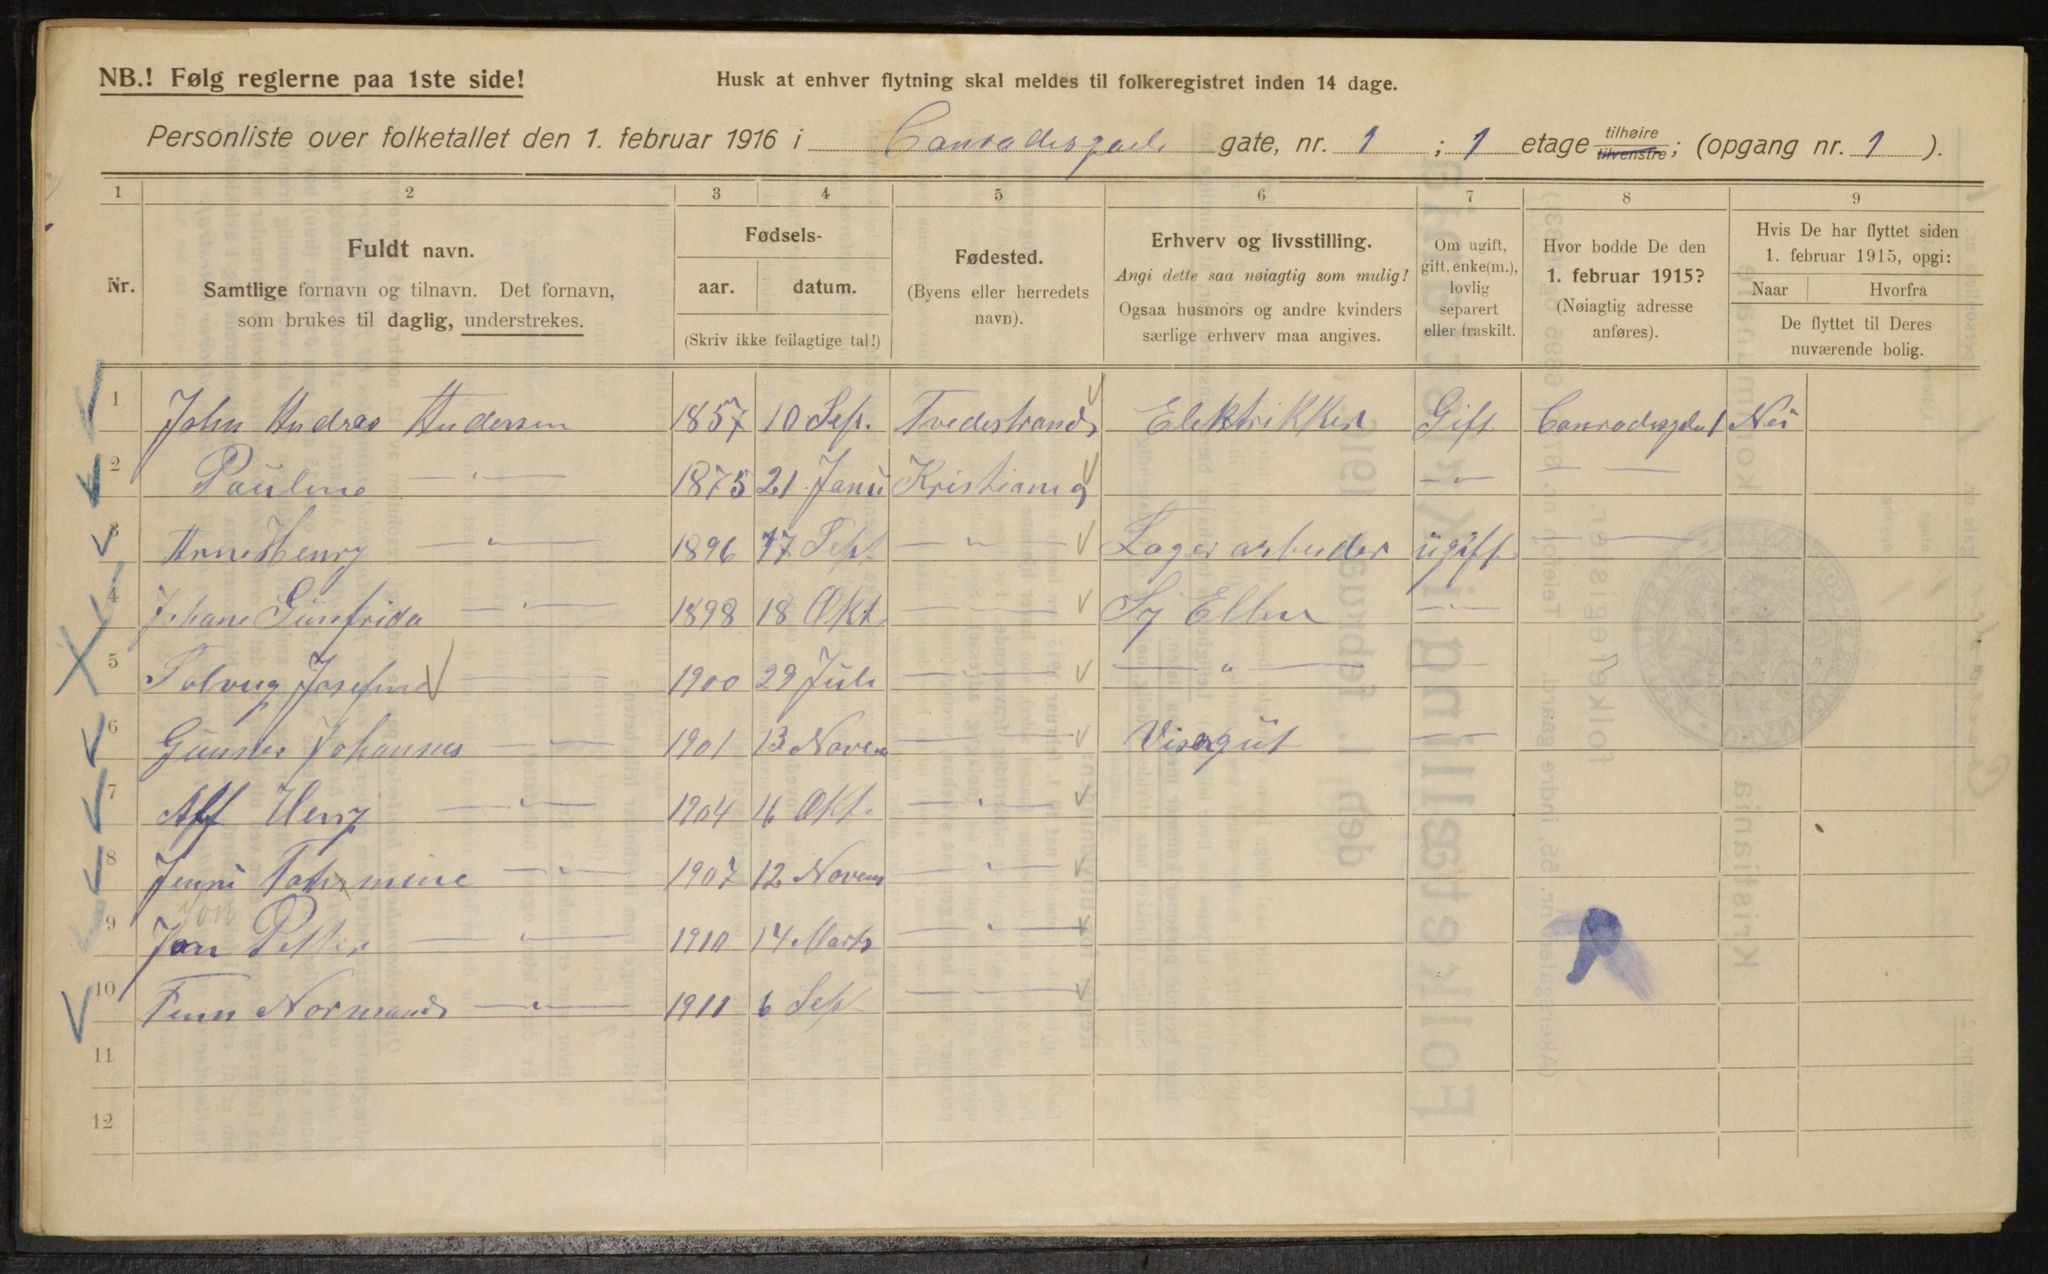 NB.! Følg reglerne paa 1ste side!
Husk at enhver flytning skal meldes til folkeregistret inden 14 dage.
Personliste over folketallet den 1. februar 1916 i Conradisgade gate, nr. 1 ; 1 etage tilhøire tilvenstre; (opgang nr. 1 ).
1 2 3 4 5 6 7 8 9
Nr.
Fuldt navn.
Samtlige fornavn og tilnavn. Det fornavn,
som brukes til daglig, understrekes.
Fødsels-
aar. datum.
(Skriv ikke feilagtige tal!)
Fødested.
(Byens eller herredets
navn).
Erhverv og livsstilling.
Angi dette saa nøiagtig som mulig!
Ogsaa husmors og andre kvinders
særlige erhverv maa angives.
Om ugift,
gift, enke(m.),
lovlig
separert
eller fraskilt.
Hvor bodde De den
1. februar 1915?
(Nøiagtig adresse
anføres).
Hvis De har flyttet siden
1. februar 1915, opgi:
Naar Hvorfra
De flyttet til Deres
nuværende bolig.
1 John Andreas Andersen 1857 10 Sep. Tvedestrand Elektrikker Gift Conradisgde 1 Nei
2 Pauline — " — 1875 21 Janu Kristiania — " — — —
3 Arne Henry — " — 1896 17 Sept — " — Lager arbeider ugift — —
4 Johane Gunfrida — " — 1898 18 Okt — " — — " —
5 Solveig Josefine — 1900 29 Juli — " — — " —
6 Gunner Johannes — " — 1901 13 Novem — — Visergut — " —
7 Alf Henry — " — 1904 16 Okt. — " —
8 Jenni — " — 1907 12 Novem — " —
9 Jon Petter — " — 1910 14 Marts — " —
Jon
10 Finn Normand — " — 1911 6 Sep — " —
11
12